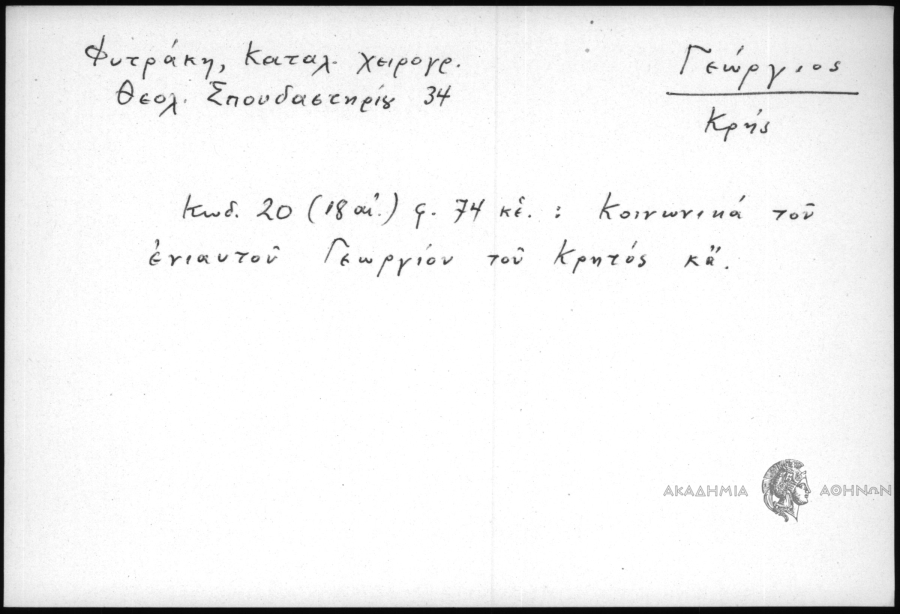 Φυτράκη, Καταλ. χειρογρ.
Θεολ. Σπουδαστηρίȣ 34
Γεώργιος
Κρής
Κωδ. 20 (18 αἰ.) φ. 74 κἑ. : Κοινωνικά τοῦ
ἐνιαυτοῦ Γεωργίου τοῦ Κρητός κἄ.
ΑΚΑΔΗΜΙΑ ΑΘΗΝΩΝ